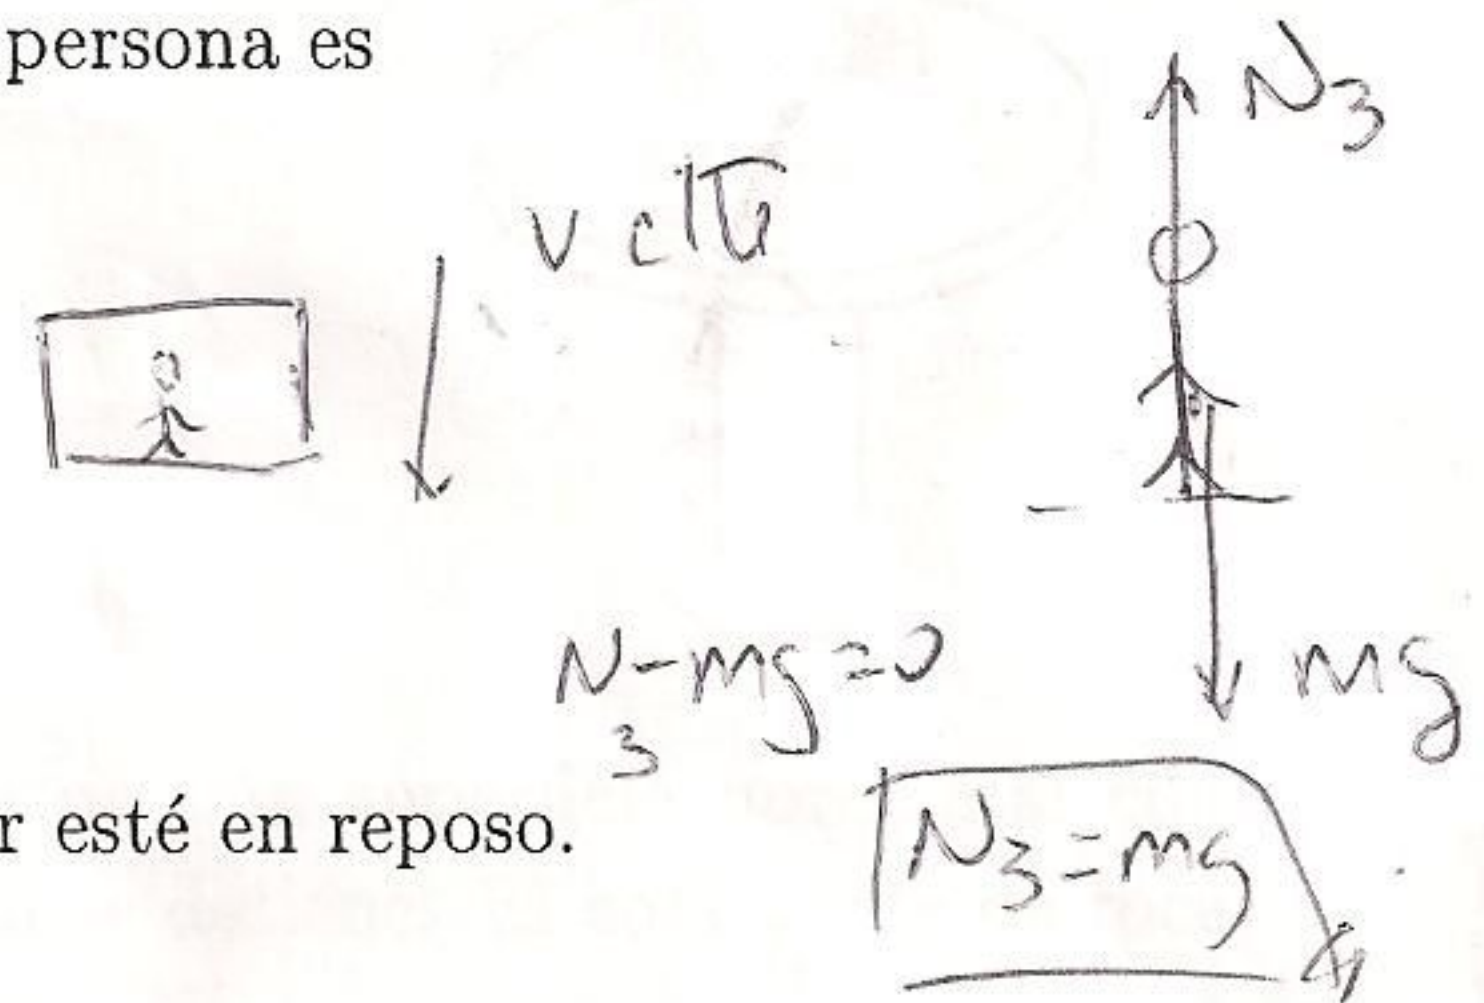 persona es
N3
v cte
N3 - mg = 0
mg
r esté en reposo.
N3 = mg